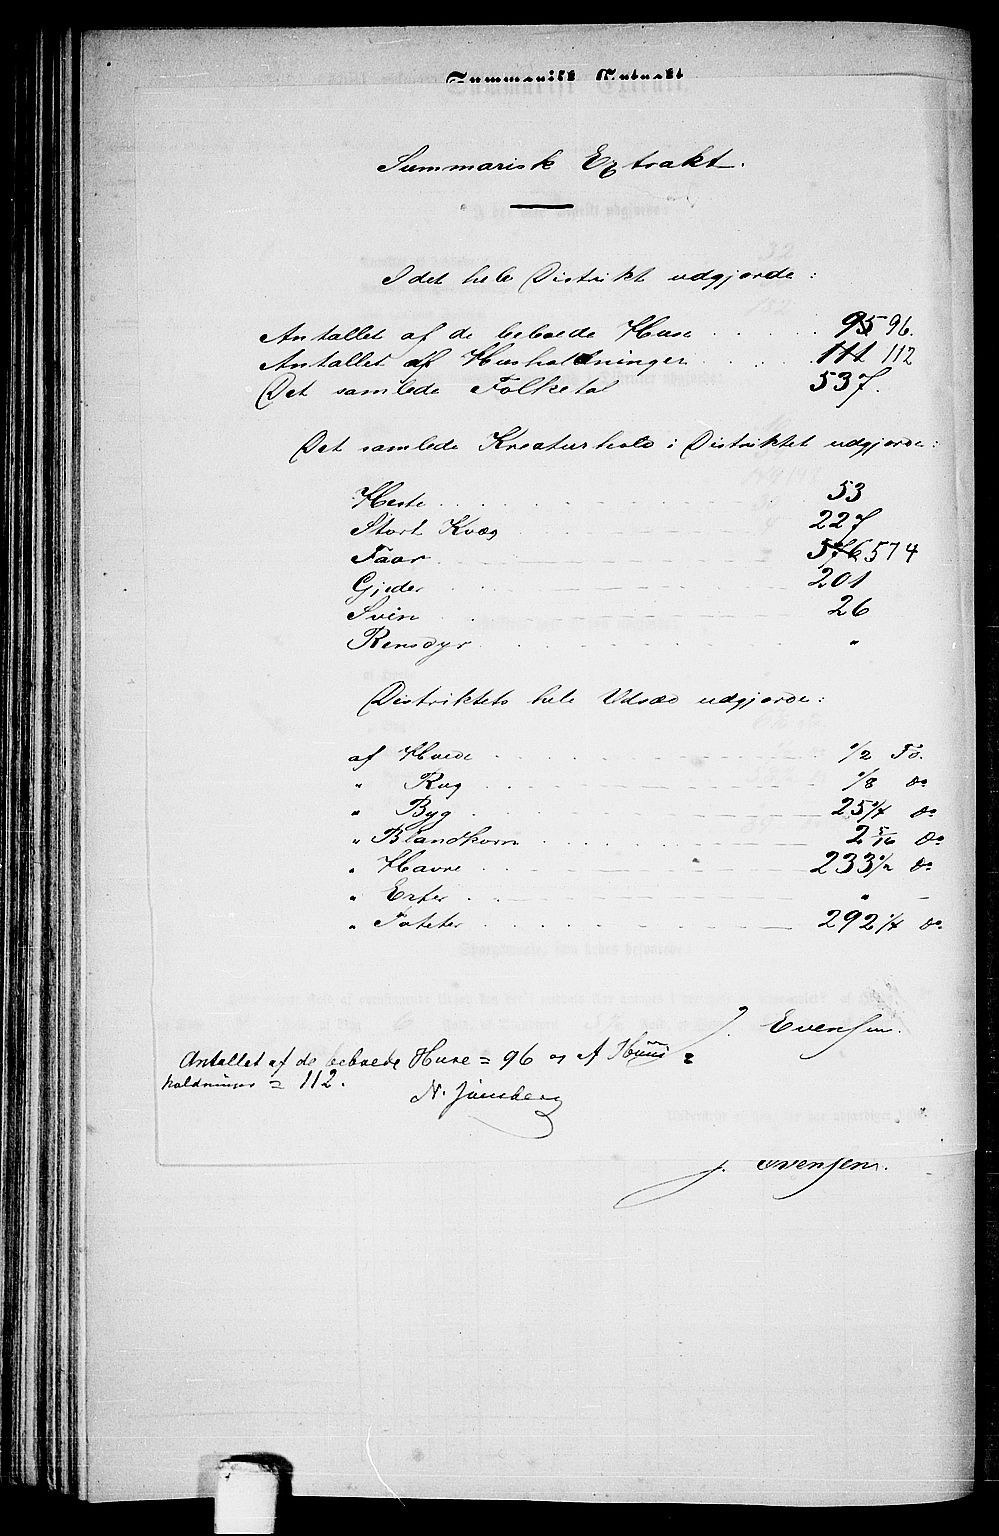 Summarisk Extrakt
Summarisk Extrakt.
I det hele Distrikt udgjorde:
Antallet af de beboede Huse . . . . 95 96.
Antallet af Husholdninger . . 111 112
Det samlede Folketal 537.
Det samlede Kreaturhold i Distriktet udgjorde:
Heste 53
Stort Kvæg 227
Faar 576 574
Gjeder 201
Svin 26
Rensdyr "
Distriktets hele Udsæd udgjorde:
af Hvede 1/2 To.
" Rug 1/8 do
" Byg 25 1/4 do
" Blandkorn 2 5/16 do
" Havre 233 1/2 do
" Erter " –
" Poteter 292 1/4 do
J. Evensen.
Antallet af de beboede Huse = 96 og A Huus=
holdninger = 112.
J. Evensen.